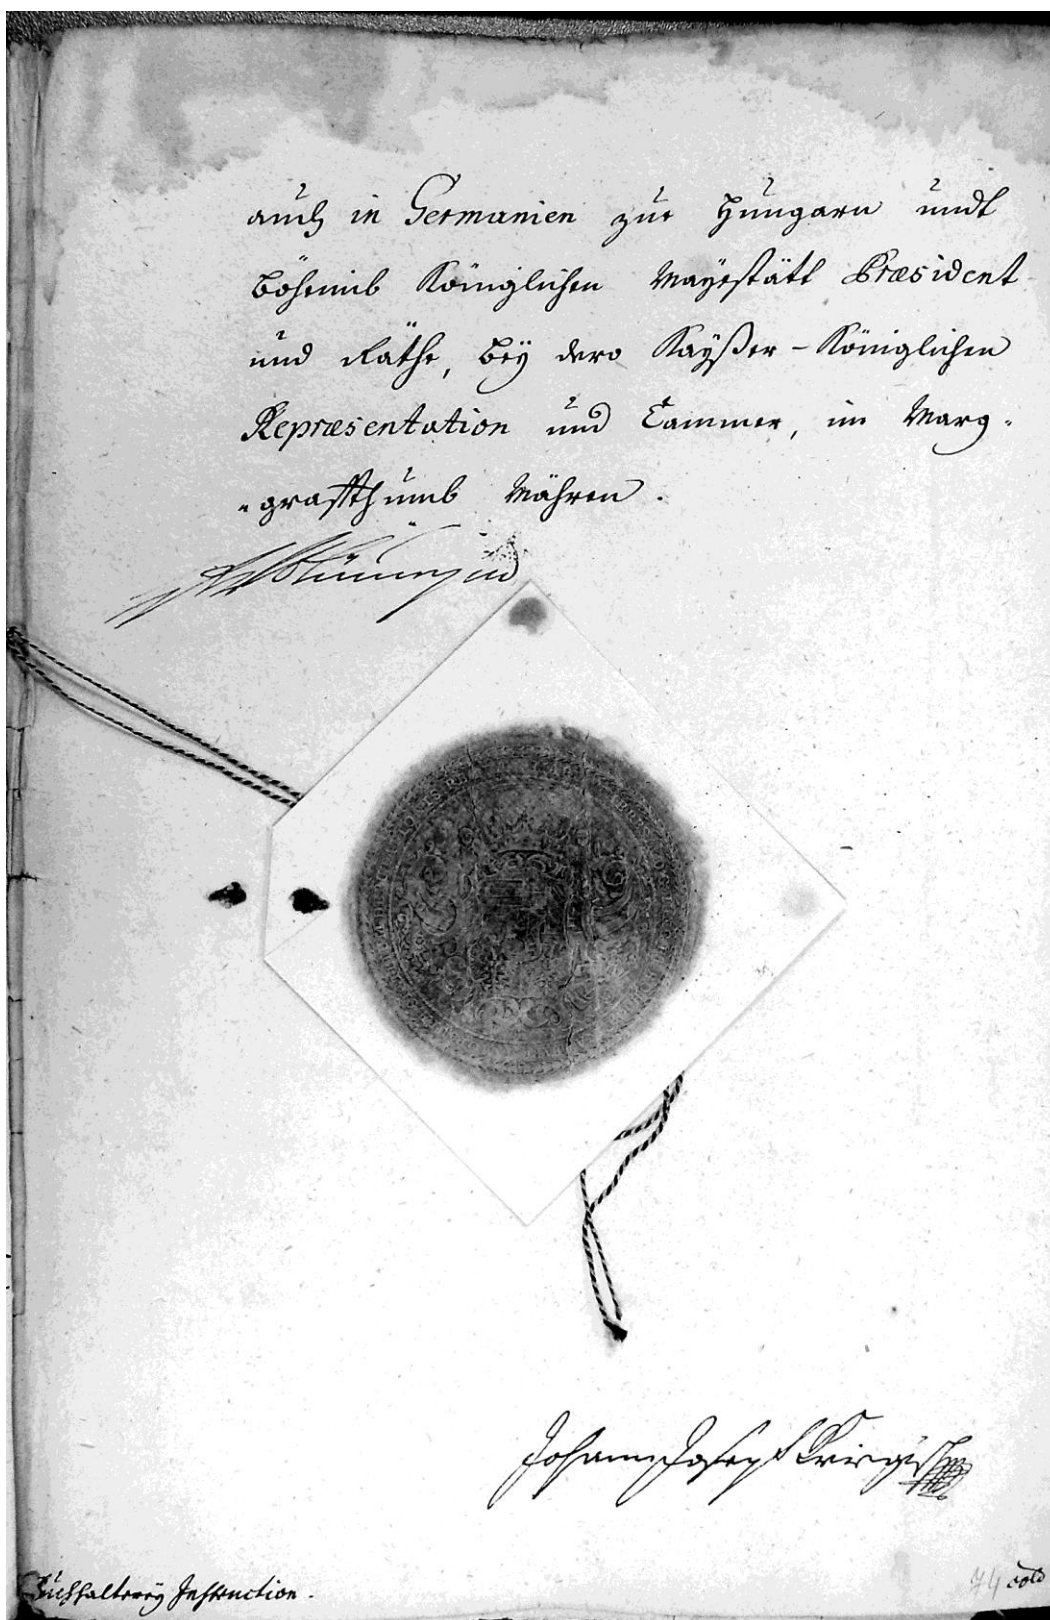 auch in Germanien zue Hungarn undt
Böheimb Königlichen Mayestätt Præsident
und Räthe, beÿ dero Kaÿßer-Königlichen
Repræsentation und Cammer, im Marg-
-graffthumb Mähren.
Johann Joseph
Buchhalterey Instruction.
74